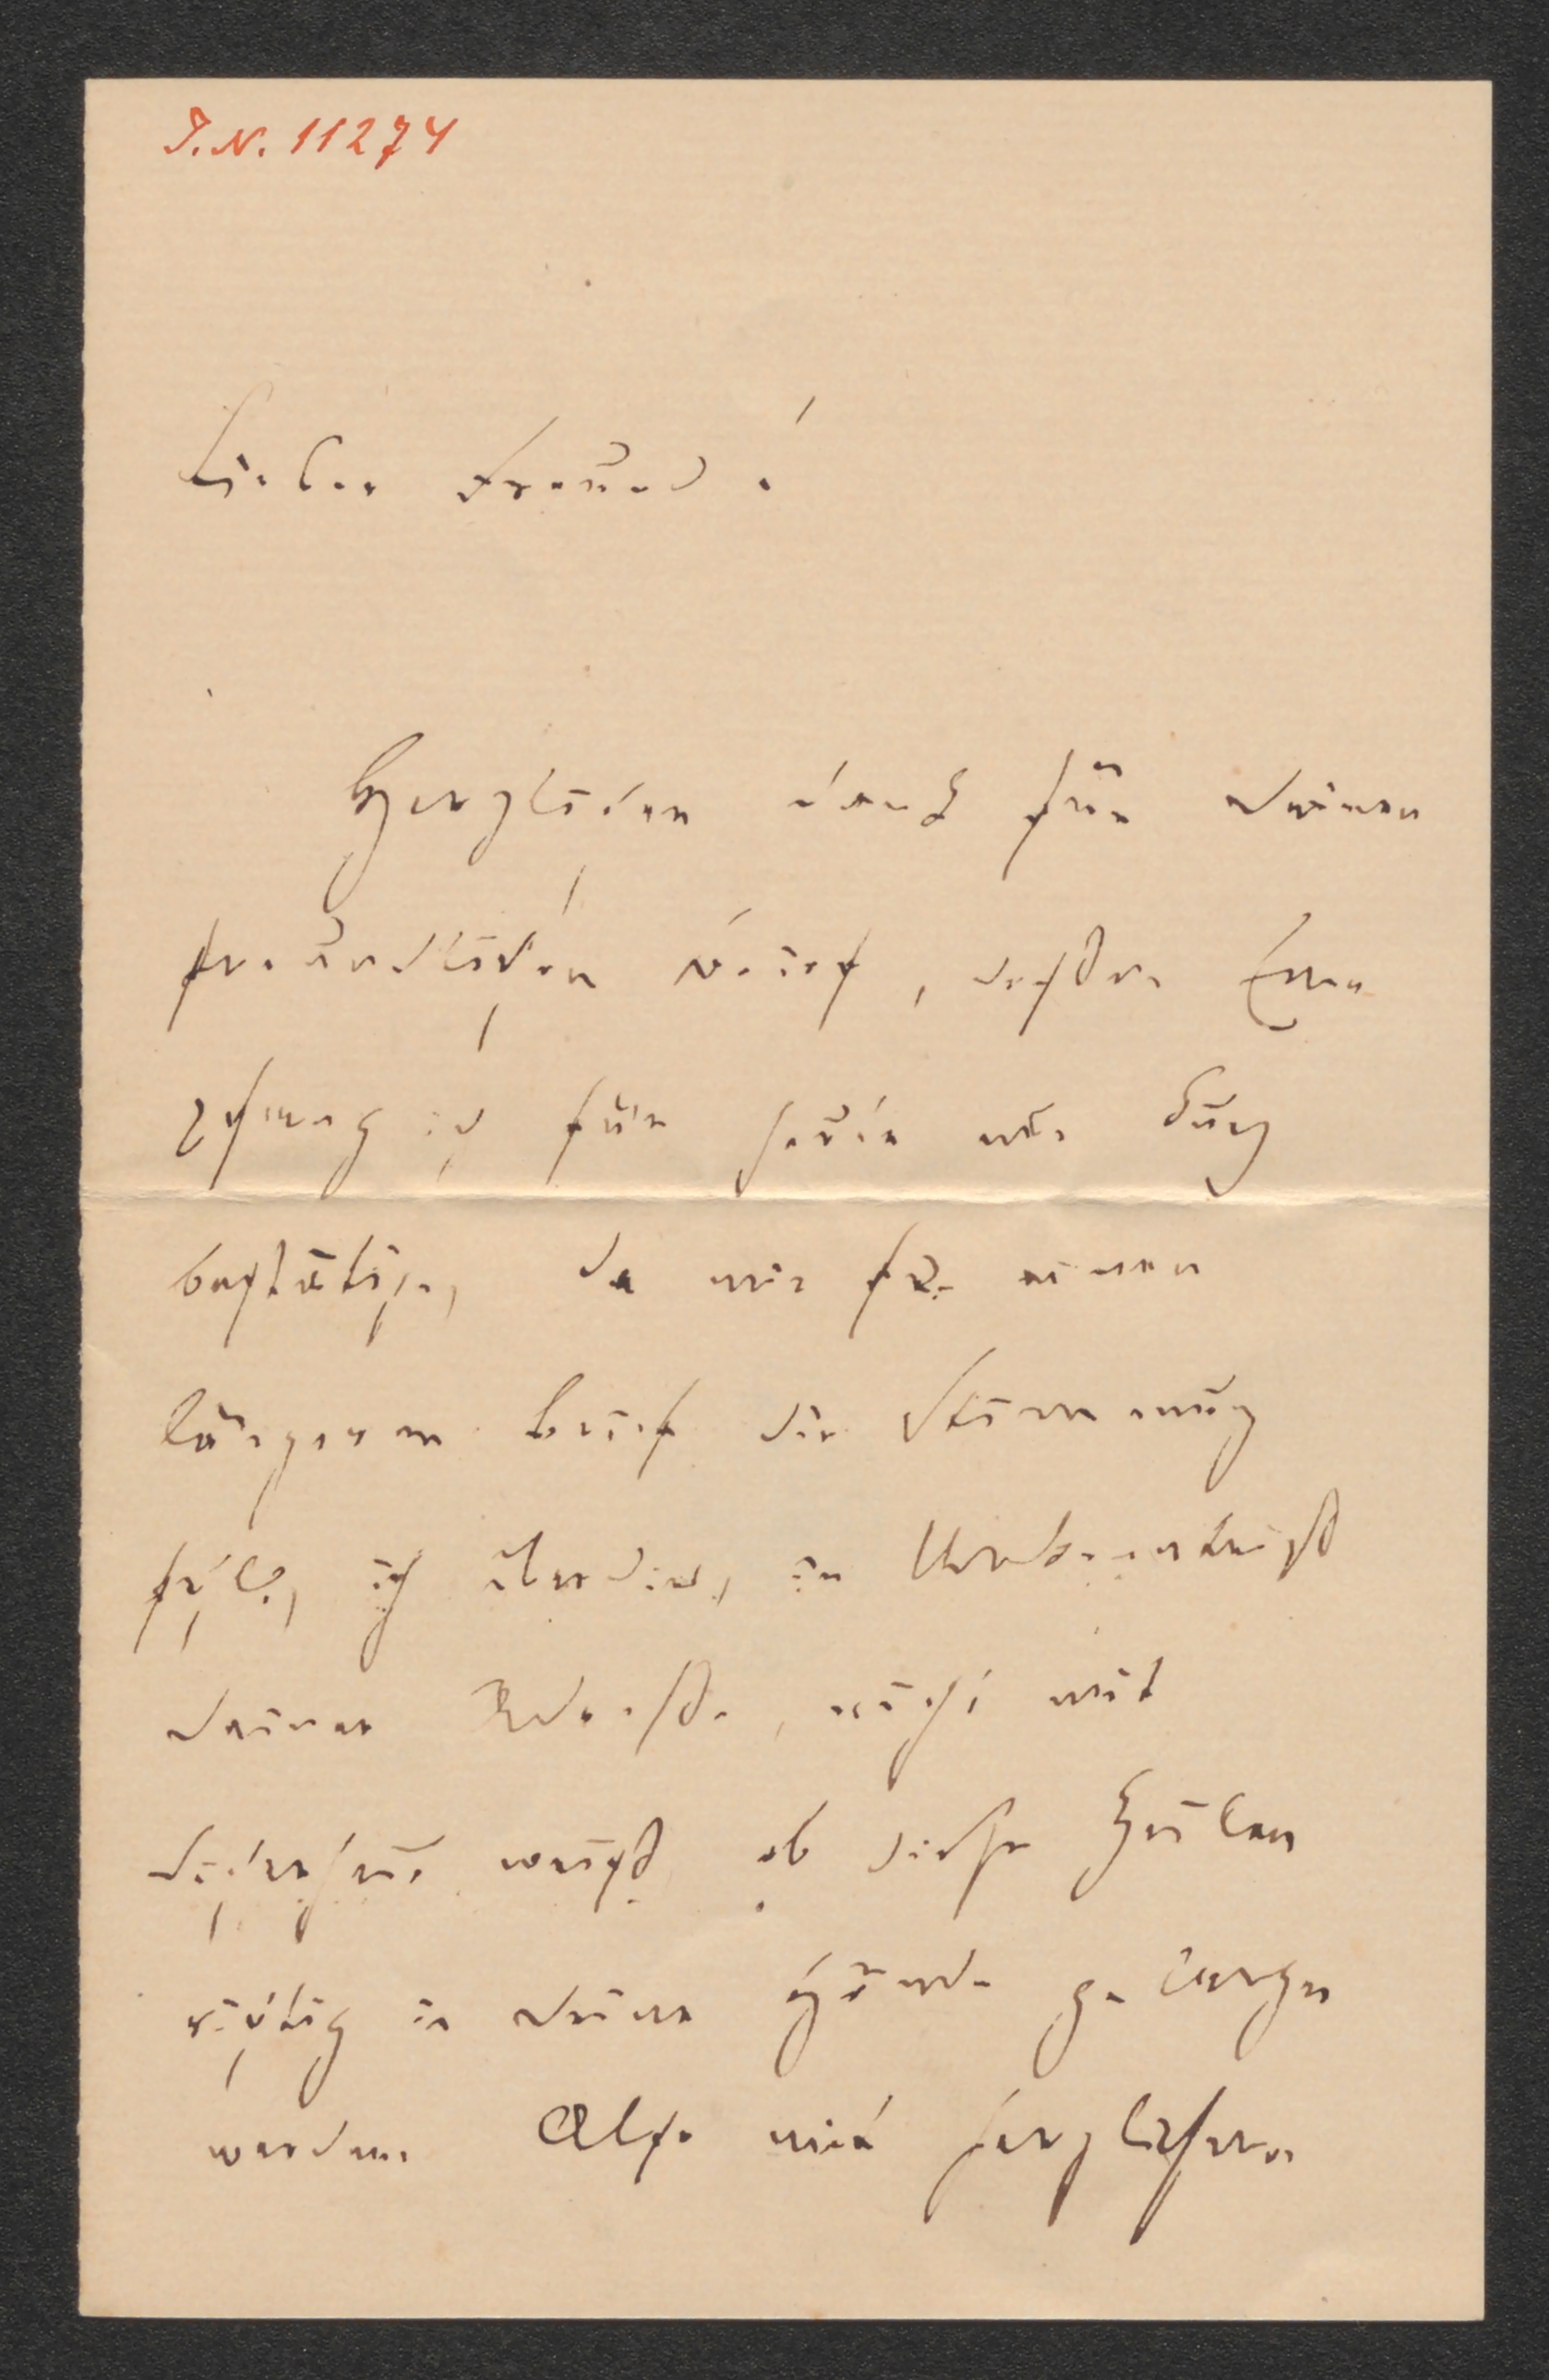 I.N. 11274
Lieber Freund!
Herzlichen Dank für deinen
freundlichen Brief, dessen Em-
pfang ich für heute nur kurz
bestätige, da mir für einen
längeren Brief die Stimmung
fehlt, ich überdies, in Unkenntniß
deiner Adresse, nicht mit
Sicherheit weiß, ob diese Zeilen
richtig in deine Hände gelangen
werden. Also mit herzlichen